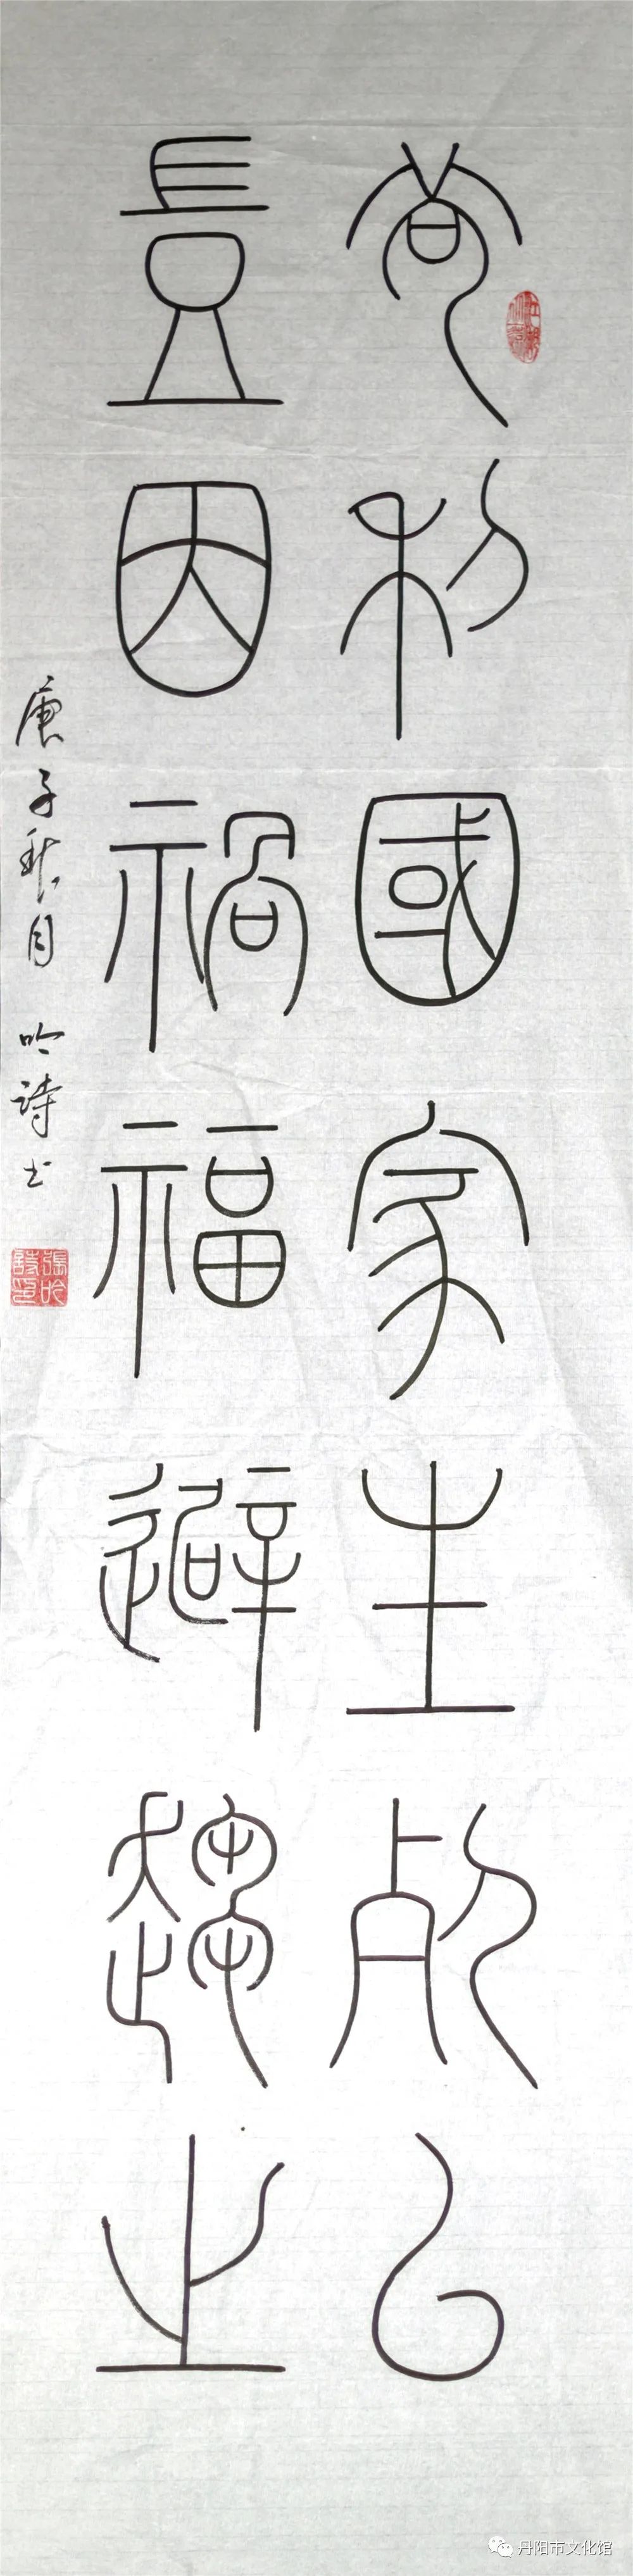 苟利國家生死以
豈因禍福避趨之
庚子秋月 吟詩书
張吟詩印
丹阳市文化馆